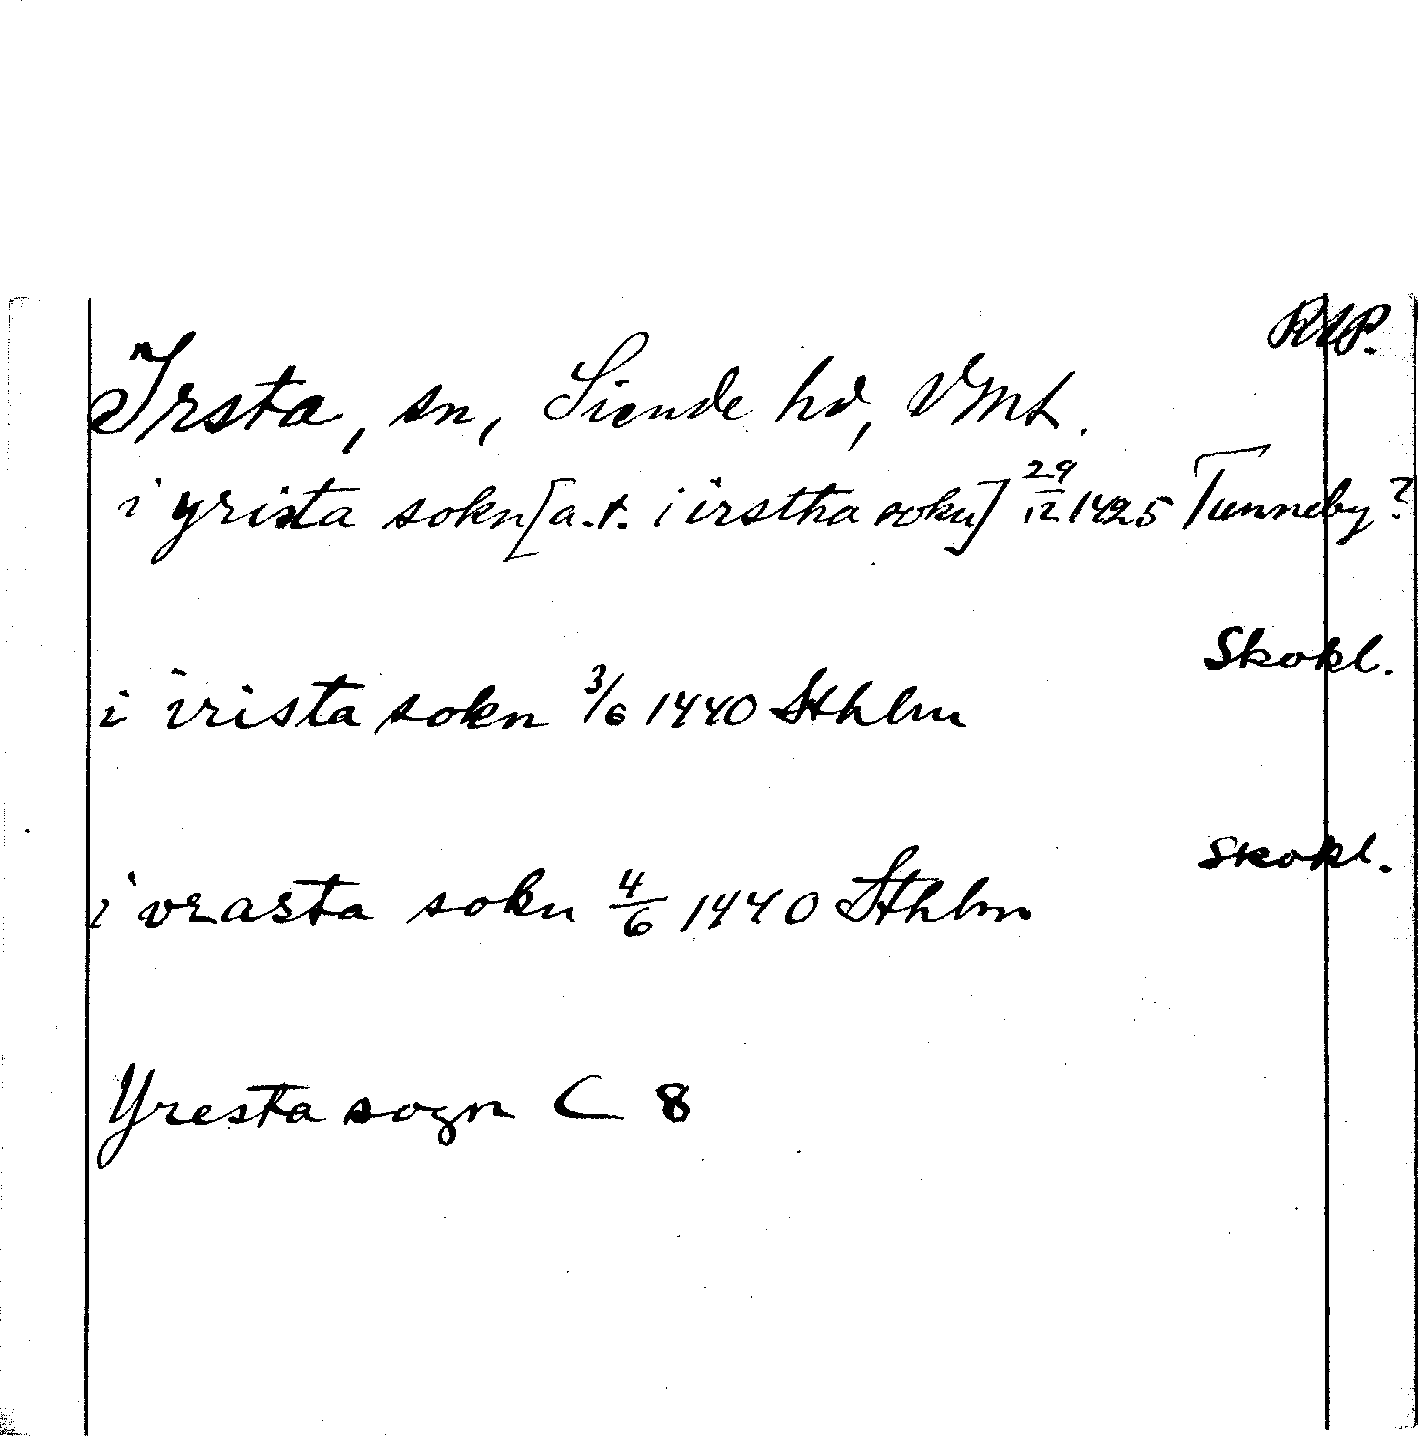 RAP.
Irsta, sn, Siende hd, Vml.
i yrista sokn [a.t. i irstha sokn] 29/12 1425 Tunneby?
Skokl.
i irista sokn 3/6 1440 Sthlm
Skokl.
i vrasta sokn 4/6 1440 Sthlm
Yresta sogn C 8